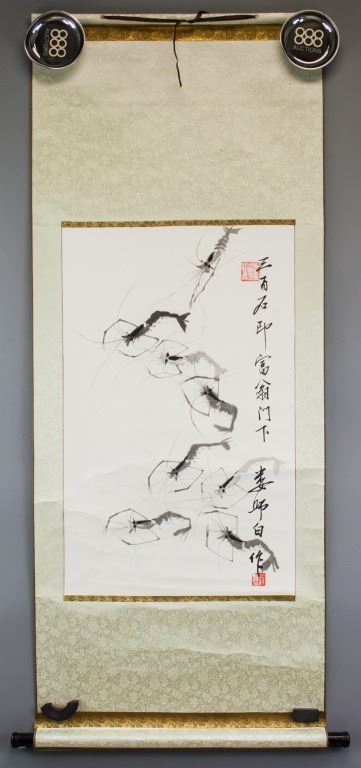 888
AUCTIONS
888
AUCTIONS
三百石印富翁门下
娄师白作